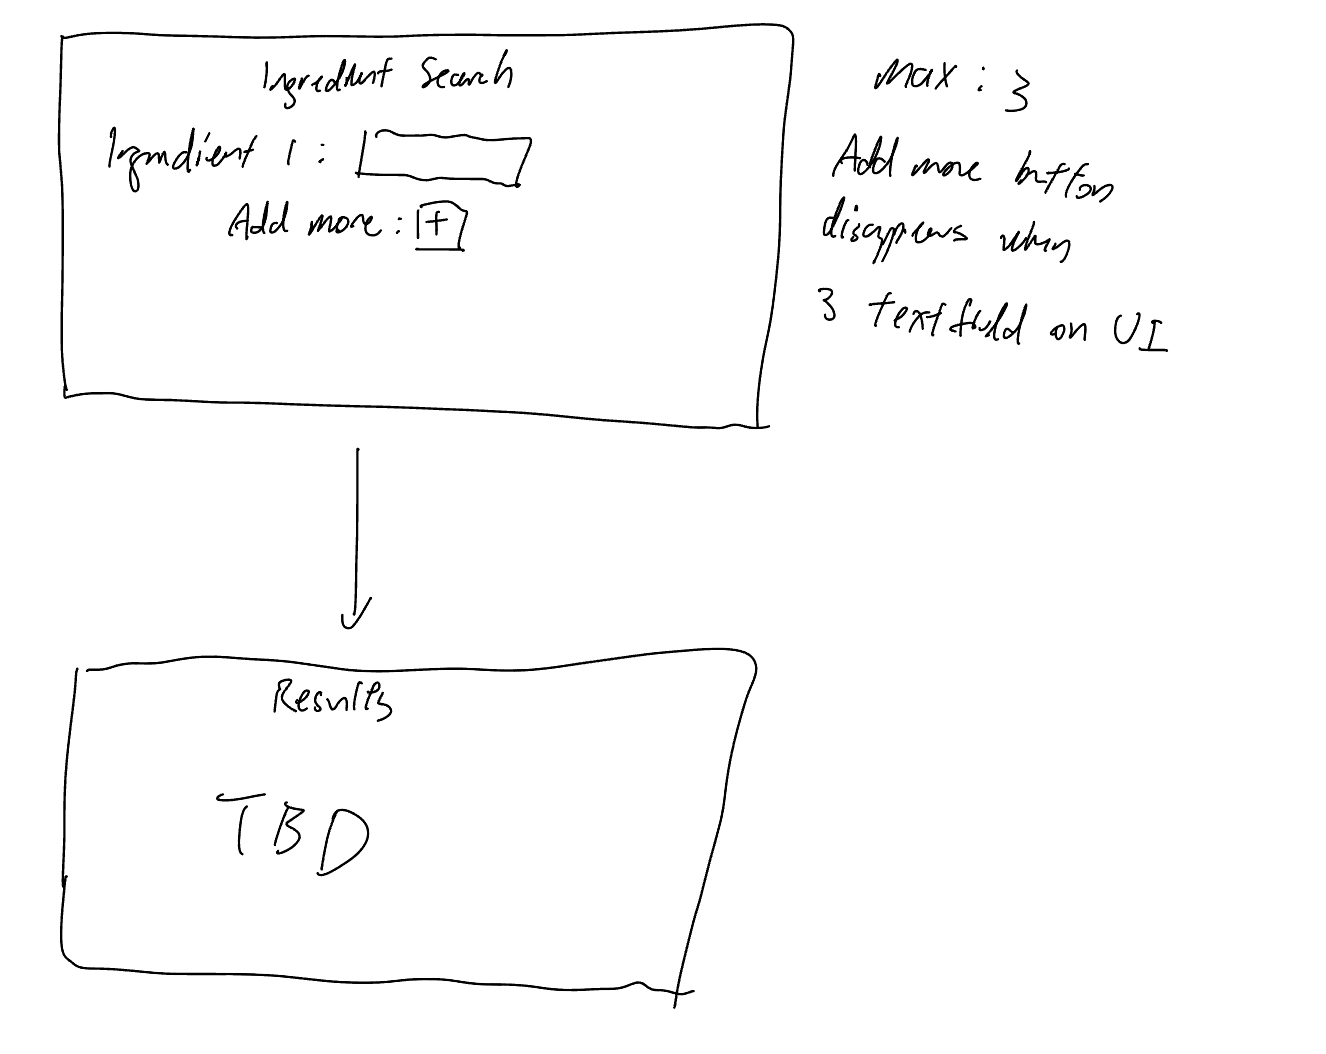 Ingredient Search
Ingredient 1 :
Add more : +
Max : 3
Add more button
disappears when
3 textfield on UI
Results
TBD